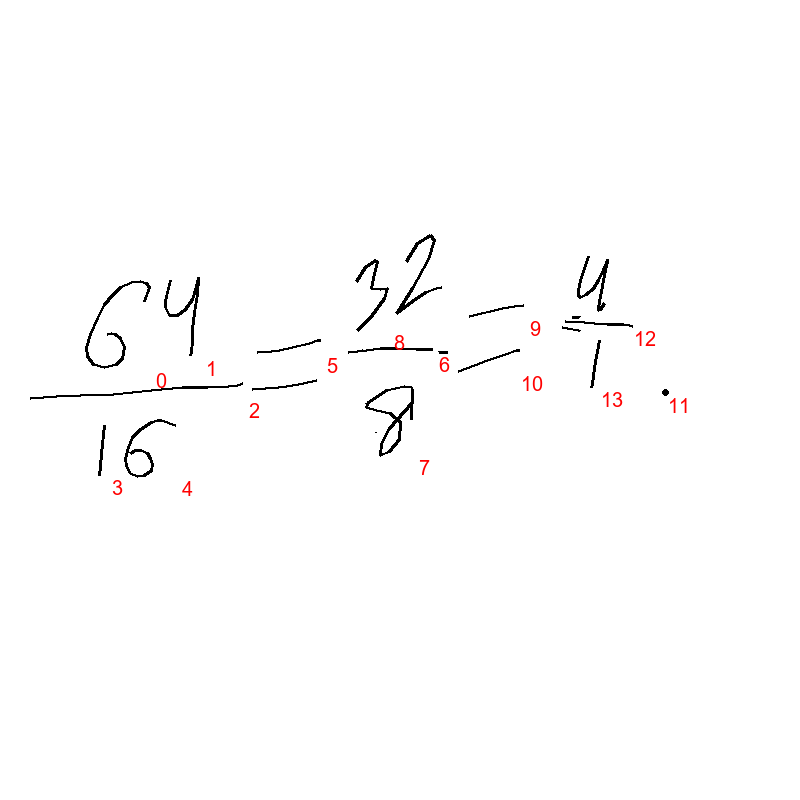 64/16 = 32/8 = 4/1 .
0 1 2 3 4 5 6 7 8 9 10 11 12 13